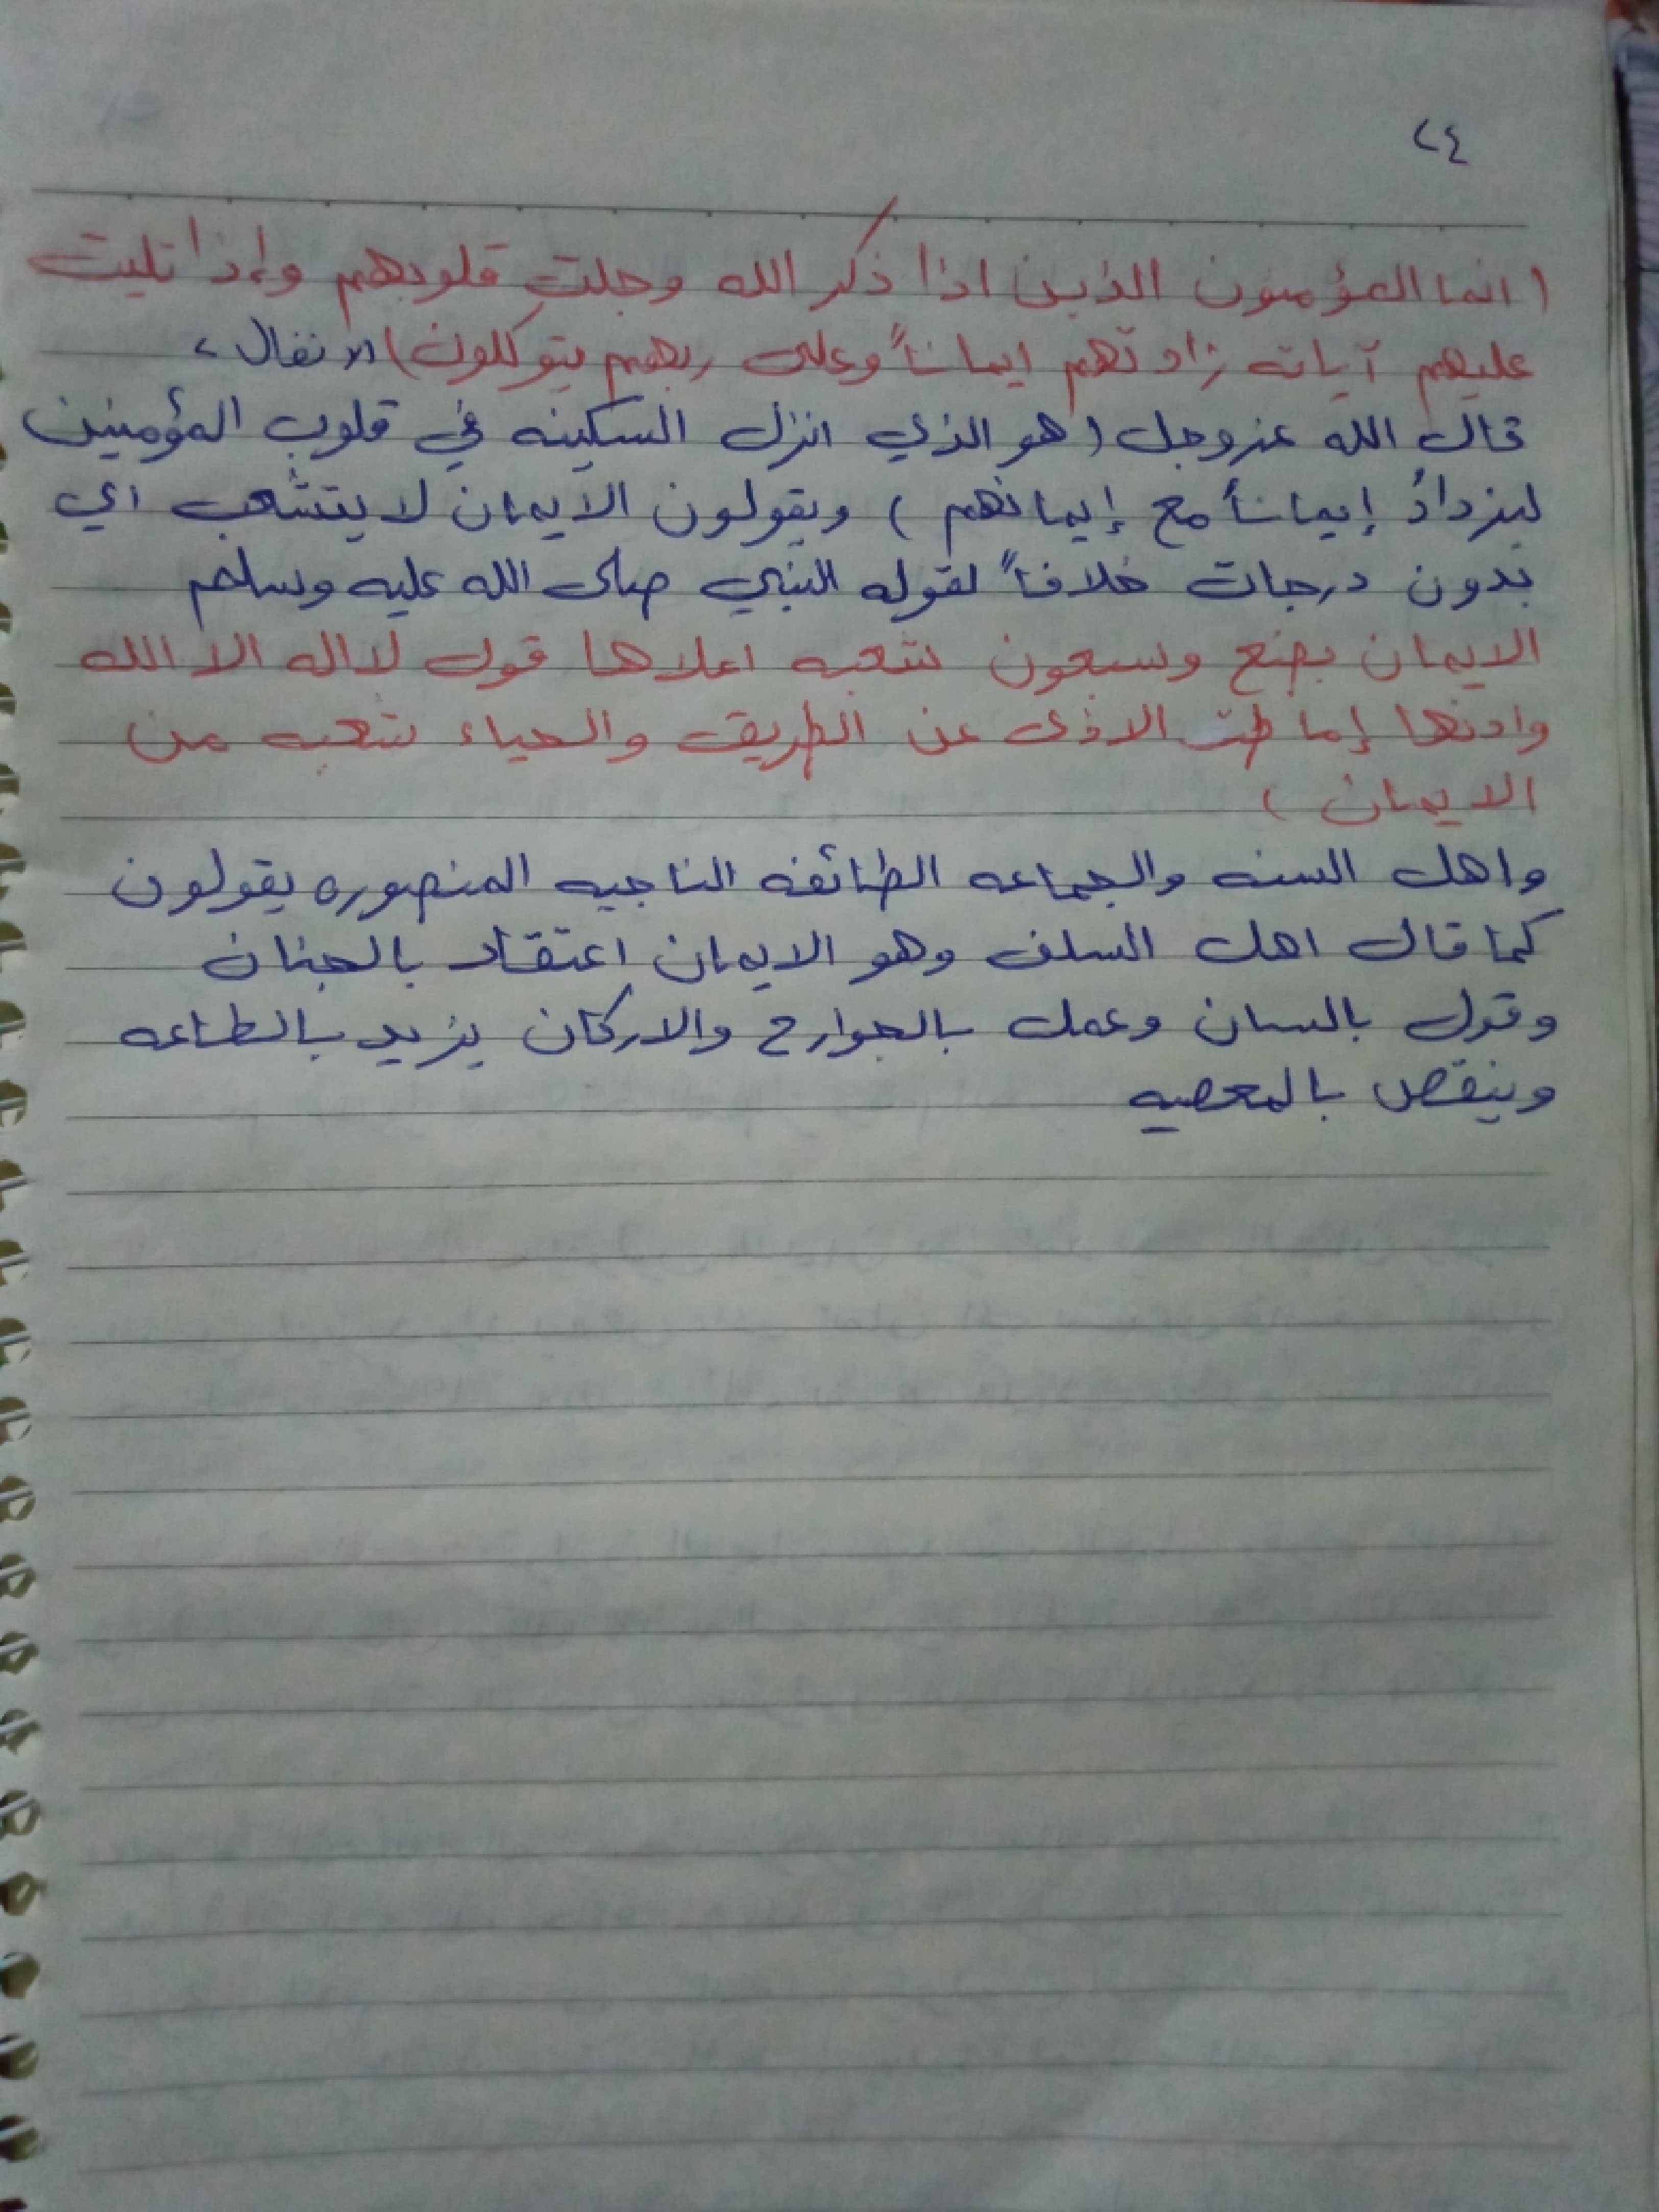 ٢٤
( انما المؤمنون الذين اذا ذكر الله وجلت قلوبهم وإذا تليت
عليهم آياته زادتهم ايماناً وعلى ربهم يتوكلون) الانفال ٢
قال الله عزوجل ( هو الذي انزل السكينه في قلوب المؤمنين
ليزدادُ إيماناً مع إيمانهم ) ويقولون الايمان لا يتشعب اي
بدون درجات خلافاً لقوله النبي صلى الله عليه وسلم
الايمان بضع وسبعون شعبه اعلاها قول لااله الا الله
وادنها إماطت الاذى عن الطريق والحياء شعبه من
الايمان )
واهل السنه والجماعه الطائفه الناجيه المنصوره يقولون
كما قال اهل السلف وهو الايمان اعتقاد بالجنان
وقول بالسان وعمل بالجوارح والاركان يزيد بالطاعه
وينقص بالمعصيه